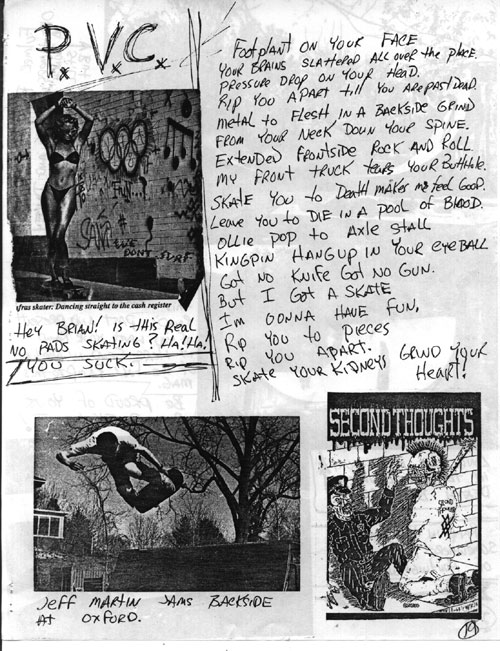 P.V.C.
FOOTPLANT ON YOUR FACE
YOUR BRAINS SLATTERED ALL OVER the PLACE.
PRESSURE DROP ON YOUR HEAD.
RIP YOU APART till YOU ARE PAST DEAD.
METAL to FLESH IN A BACKSIDE GRIND
FROM YOUR NECK DOWN YOUR SPINE.
EXTENDED FRONTSIDE ROCK AND ROLL
MY FRONT TRUCK tears YOUR Butthole.
SKATE YOU to DEATH MAKES me FEEL GOOD.
LEAVE YOU to DIE IN A POOL OF BLOOD.
OLLIE POP to AXLE STALL
KINGPIN HANGUP IN YOUR EYEBALL
GOT NO KNIFE GOT NO GUN.
BUT I GOT A SKATE
I'M GONNA HAVE FUN,
RIP YOU to PIECES
RIP YOU APART.
SKATE YOUR KIDNEYS GRIND YOUR
HEART!
FUN...?
WE
DONT SURF
skater: Dancing straight to the cash register
HEY BRIAN! IS tHIS REAL
NO PADS SKATING? HA!HA!
YOU SUCK.
SECOND THOUGHTS
JEFF MARTIN JAMS BACKSIDE
AT OXFORD.
19